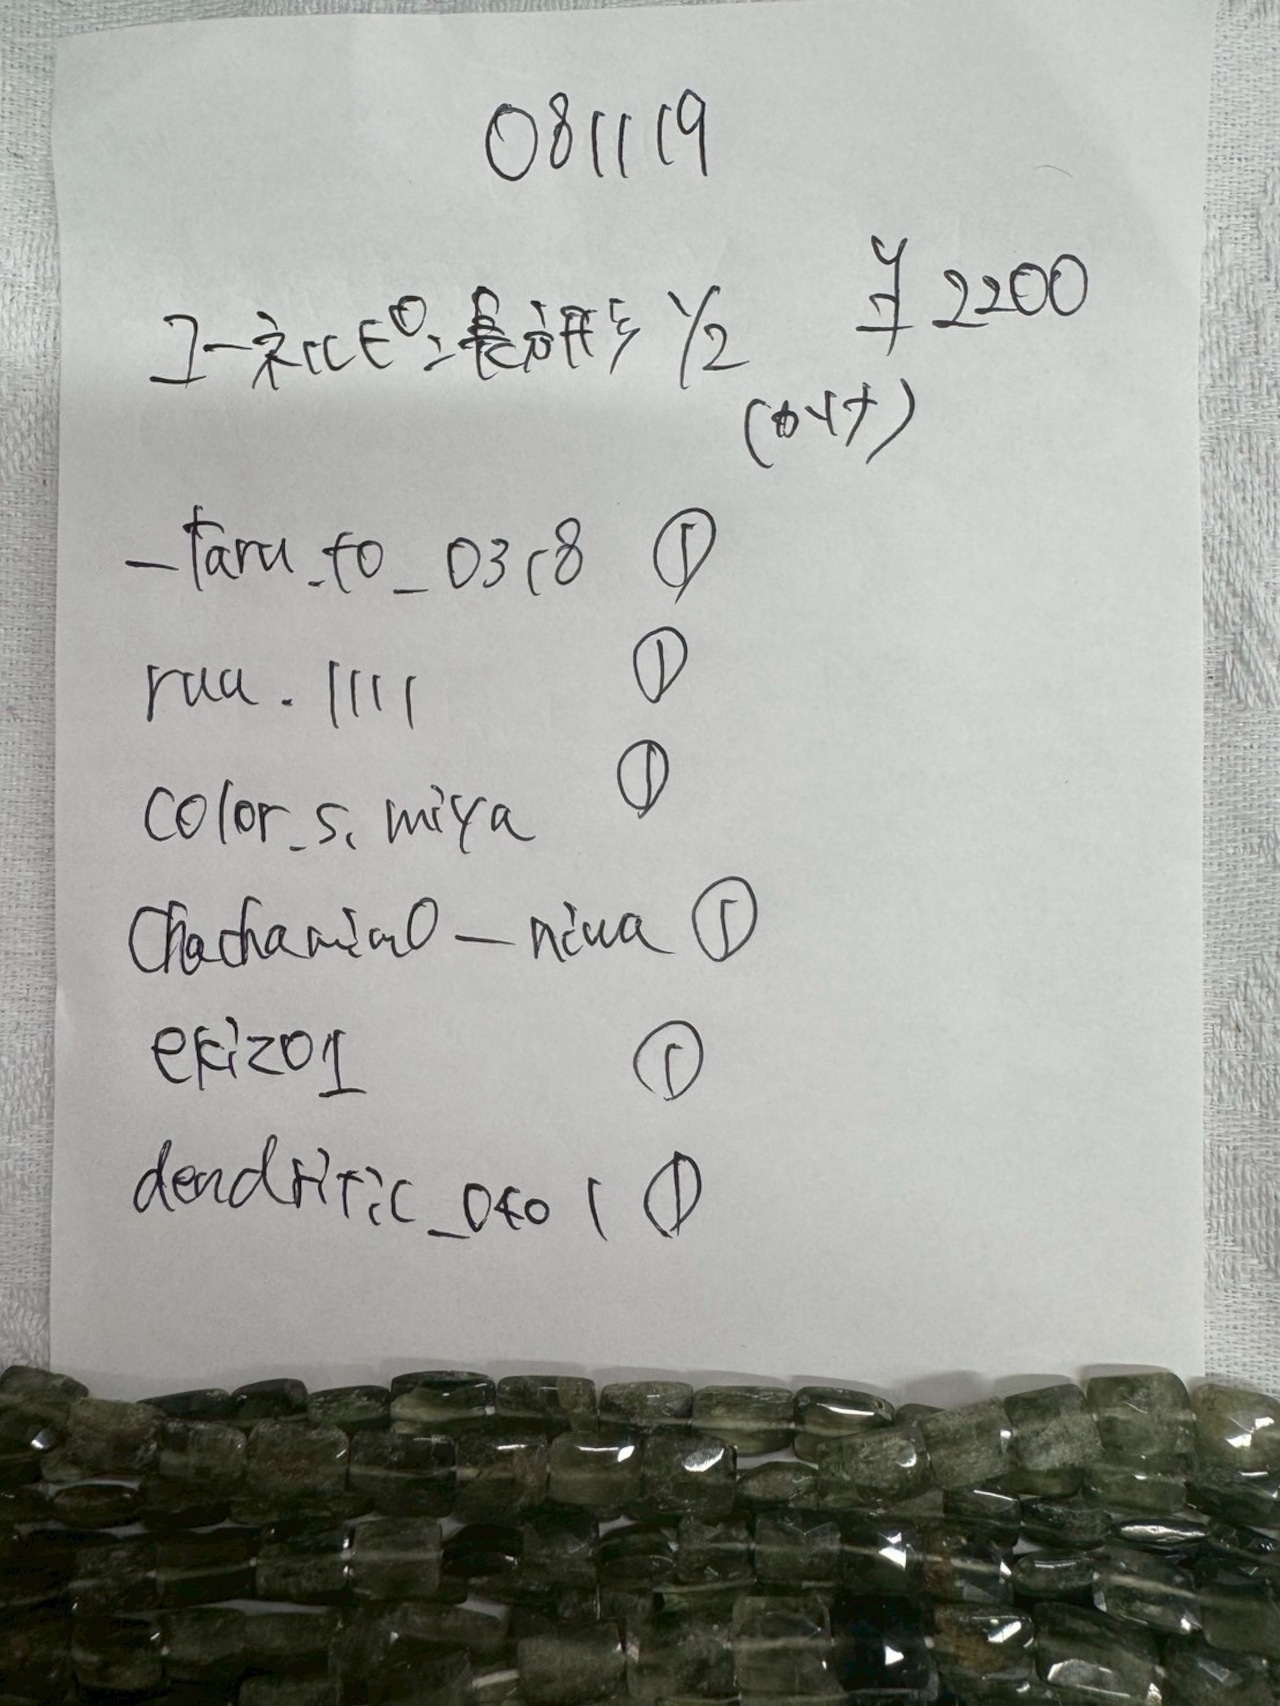 081119
コーネルピン長方形 1/2 ¥2200
(カット)
_taru.to_0318 ①
ruu.1111 ①
color_s.miya ①
ekizo1 ①
dendritic_0401 ①